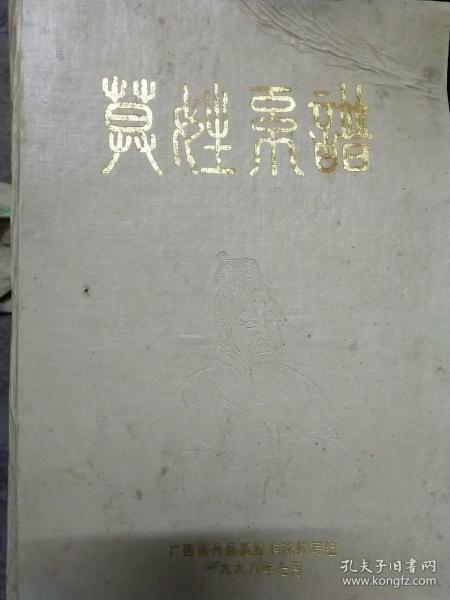 莫姓系谱
广西南丹县莫姓族谱编写组
一九九八年七月
孔夫子旧书网
www.kongfz.com